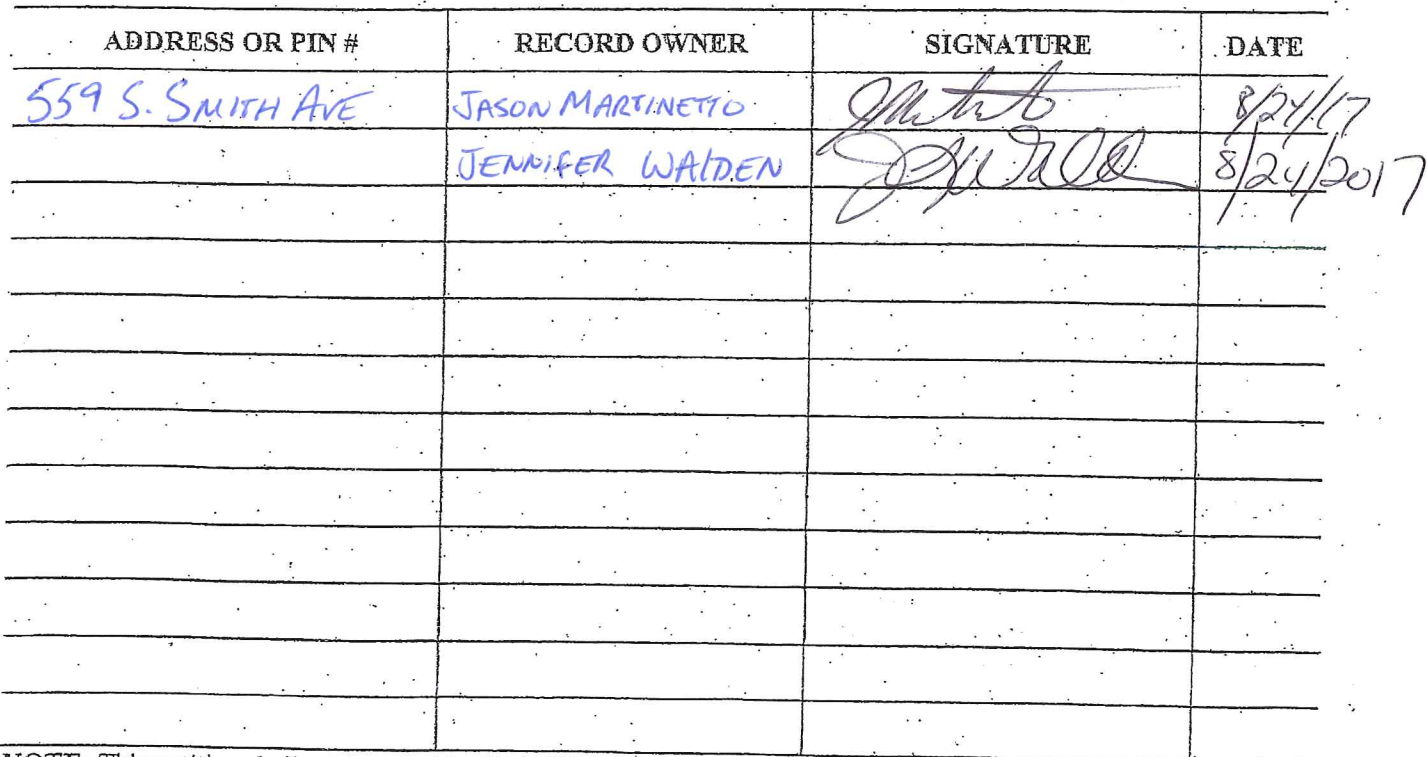 ADDRESS OR PIN # RECORD OWNER SIGNATURE DATE
559 S. SMITH AVE JASON MARTINETTO 8/24/17
JENNIFER WALDEN 8/24/2017
NOTE: